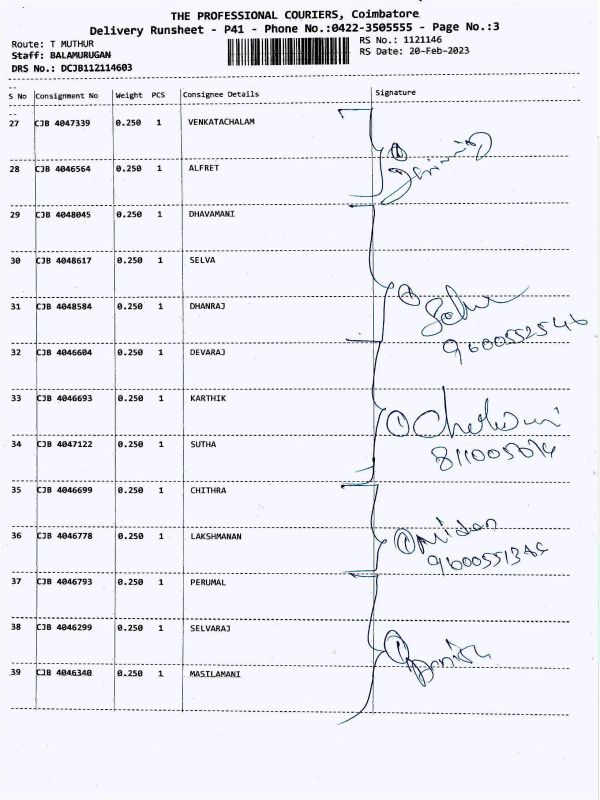 THE PROFESSIONAL COURIERS, Coimbatore
Delivery Runsheet - P41 - Phone No.:0422-3505555 - Page No.:3
Route: T MUTHUR RS No.: 1121146
Staff: BALAMURUGAN RS Date: 20-Feb-2023
DRS No.: DCJB112114603
S No Consignment No Weight PCS Consignee Details Signature
27 CJB 4047339 0.250 1 VENKATACHALAM
28 CJB 4046564 0.250 1 ALFRET
29 CJB 4048045 0.250 1 DHAVAMANI
30 CJB 4048617 0.250 1 SELVA
31 CJB 4048584 0.250 1 DHANRAJ
9600552546
32 CJB 4046604 0.250 1 DEVARAJ
33 CJB 4046693 0.250 1 KARTHIK
34 CJB 4047122 0.250 1 SUTHA
35 CJB 4046699 0.250 1 CHITHRA
36 CJB 4046778 0.250 1 LAKSHMANAN
37 CJB 4046793 0.250 1 PERUMAL
38 CJB 4046299 0.250 1 SELVARAJ
39 CJB 4046340 0.250 1 MASILAMANI